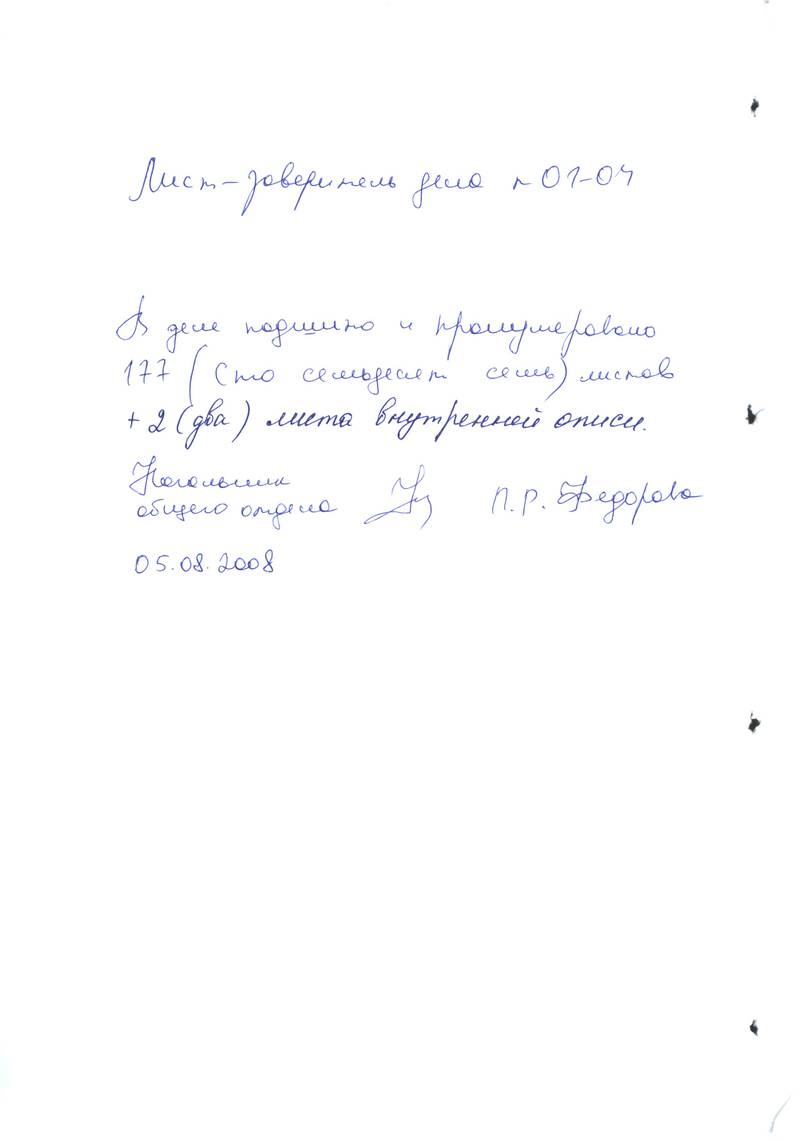 Лист-заверитель дела № 01-04
В деле подшито и пронумеровано
177 (сто семьдесят семь) листов
+ 2 (два) листа внутренней описи.
Начальник
общего отдела П.Р. Федорова
05.08.2008